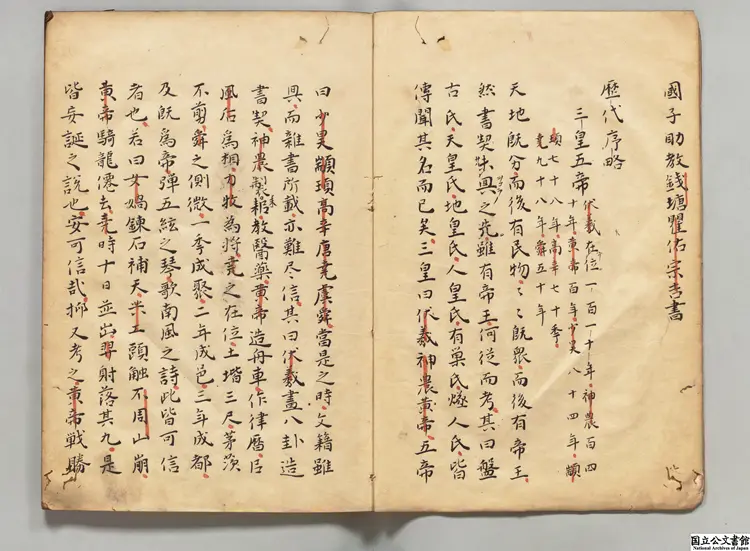 國子助教錢塘瞿佑宗吉書
歷代序略
三皇五帝
伏羲在位一百一十年神農百四
十年黃帝百年少昊八十四年顓
頊七十八年高辛七十季
堯九十八年舜五十年
天地既分而後有民物〻〻既衆而後有帝王
然書契未興之先雖有帝王何從而考其曰盤
古氏天皇氏地皇氏人皇氏有巢氏燧人氏皆
傳聞其名而已矣三皇曰伏羲神農黃帝五帝
曰少昊顓頊高辛唐堯虞舜當是之時文籍雖
興而雜書所載亦難尽信其曰伏羲畫八卦造
書契神農製耒耜教醫藥黃帝造舟車作律曆臣
風后為相力牧為將堯之在位土堦三尺茅茨
不剪舜之側微一季成聚二年成邑三年成都
及既為帝彈五絃之琴歌南風之詩此皆可信
者也若曰女媧鍊石補天共工頭觸不周山崩
黃帝騎龍僊去堯時十日並出羿射落其九是
皆妄誕之說也安可信哉抑又考之黃帝戰勝
国立公文書館
National Archives of Japan